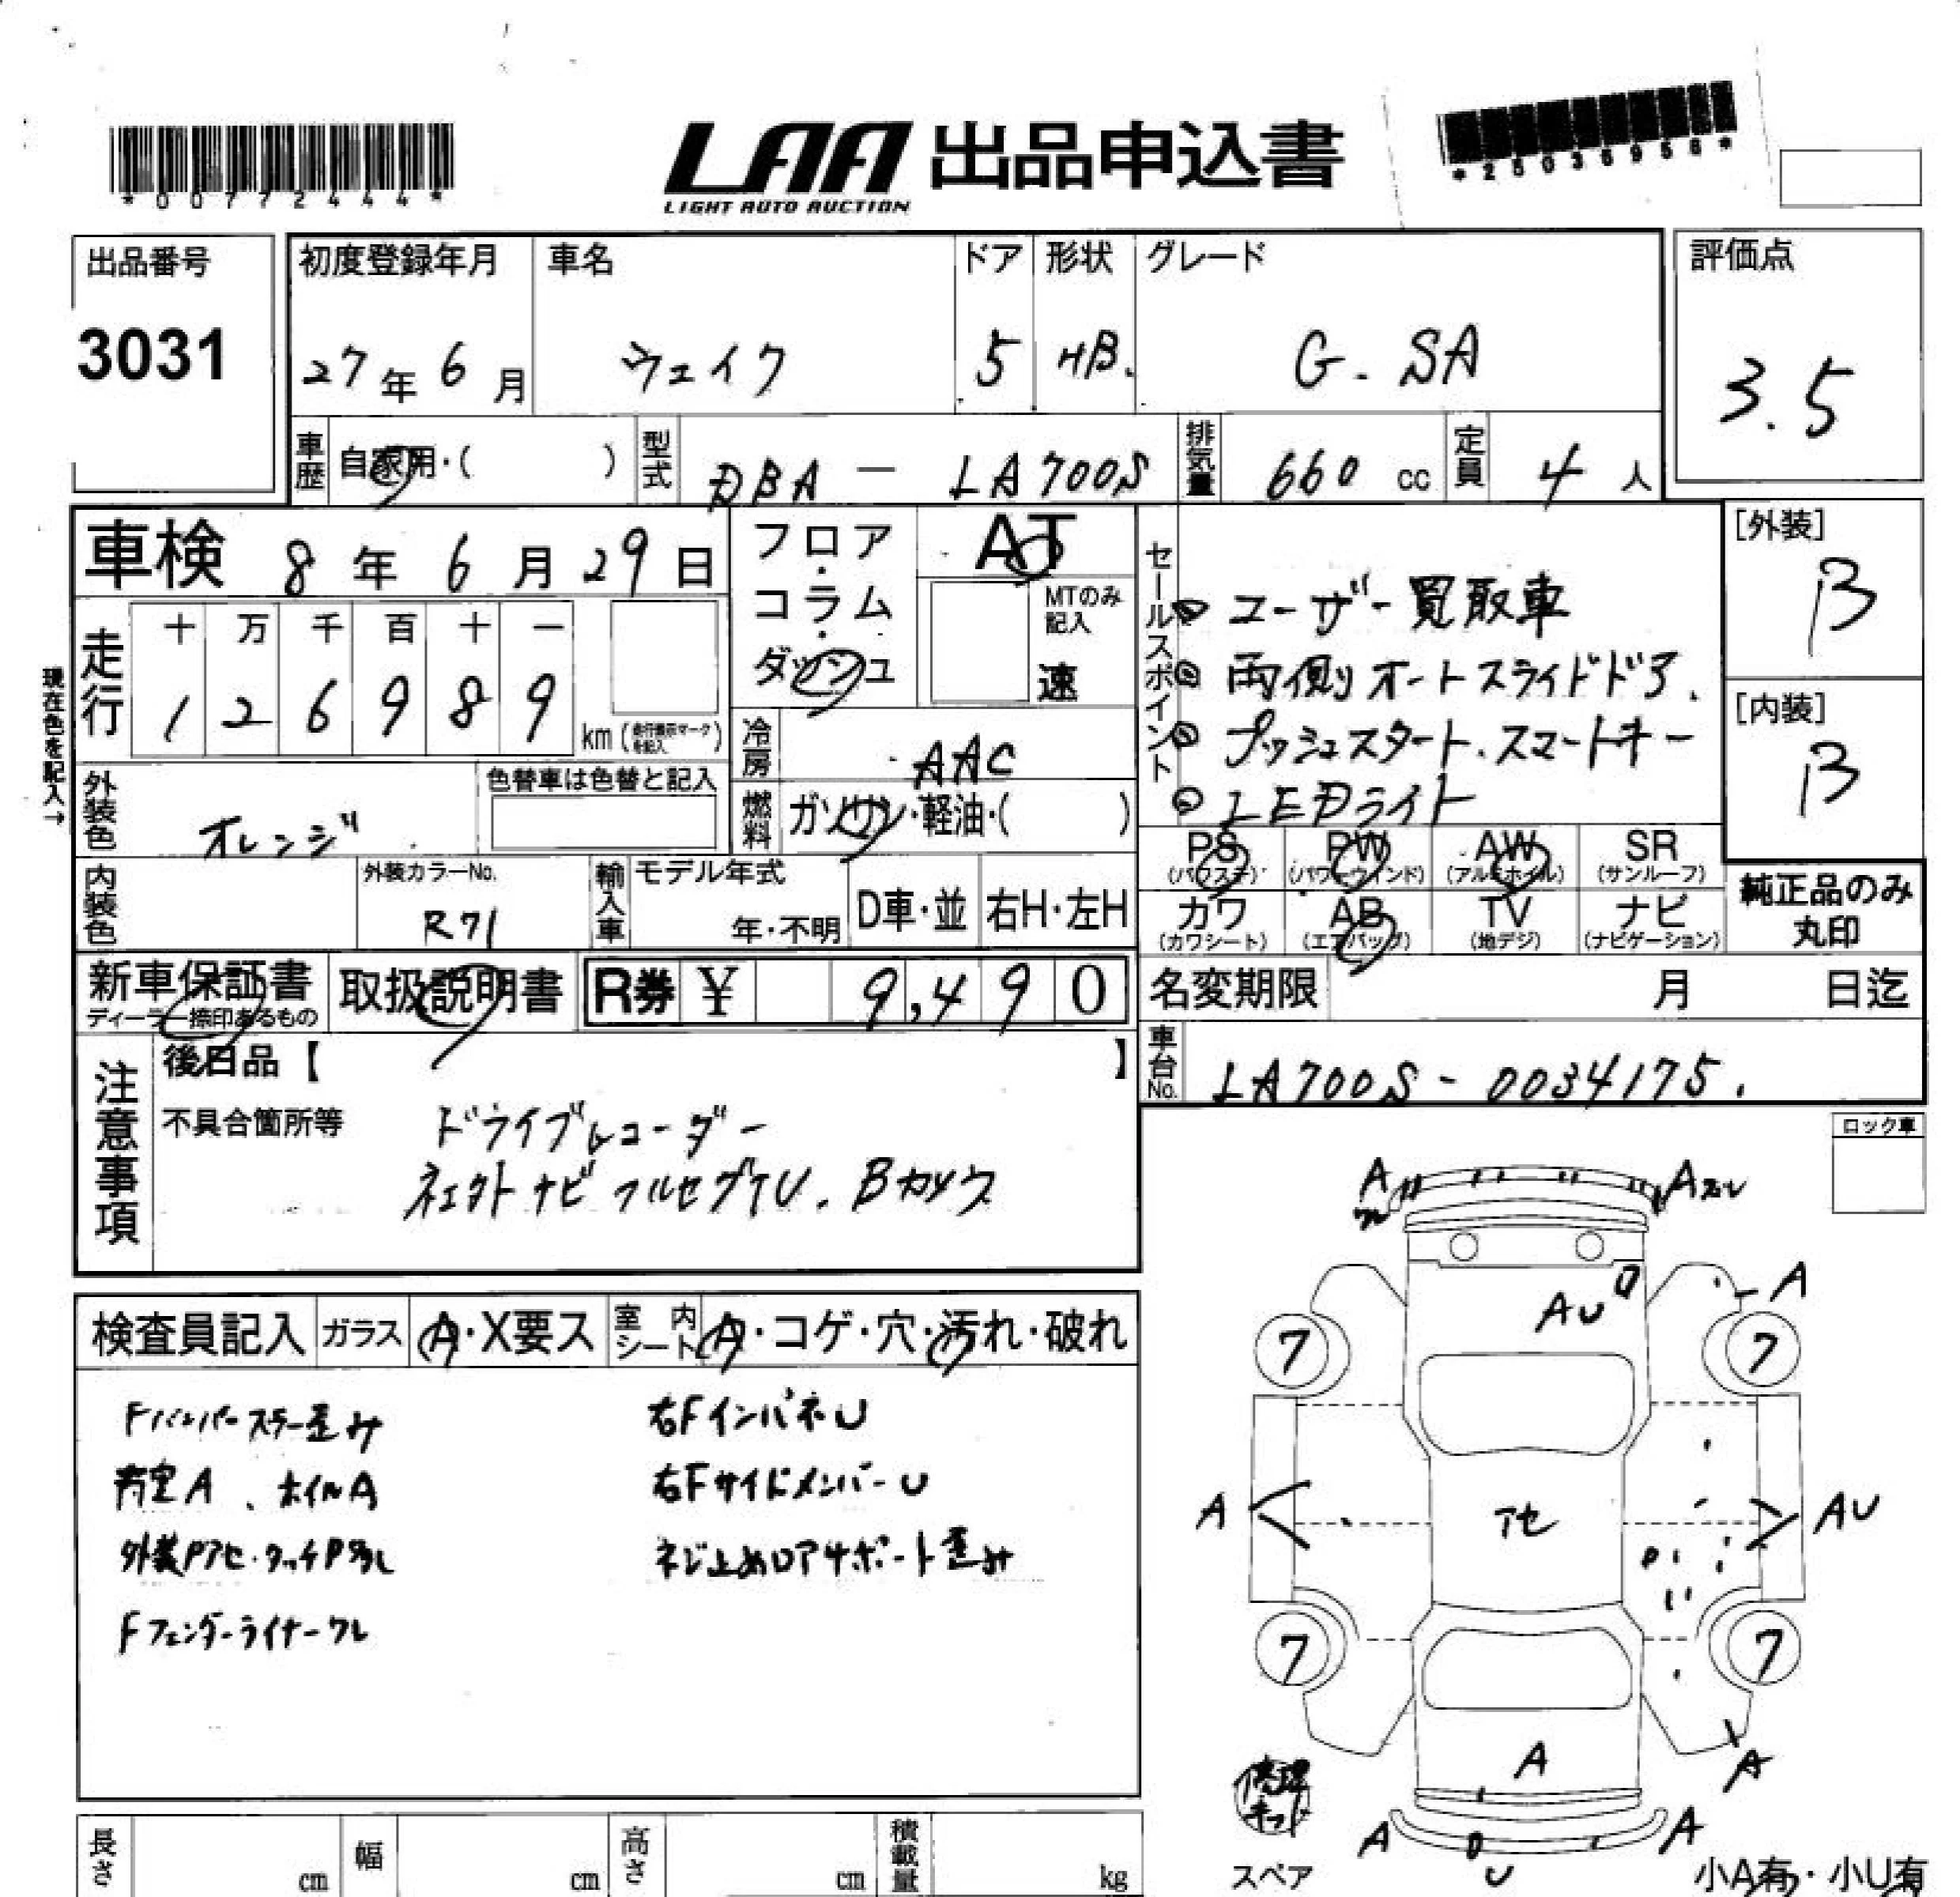 *00772444*
LAA 出品申込書
LIGHT AUTO AUCTION
*25036956*
出品番号
3031
初度登録年月
27年 6月
車名
ウェイク
ドア
5
形状
HB.
グレード
G. SA
評価点
3.5
車歴
自家用・( )
型式
DBA - LA700S
排気量
660 cc
定員
4 人
車検 8年 6月 29日
フロア・コラム・ダッシュ
AT
MTのみ記入
速
セールスポイント
◎ ユーザー買取車
◎ 両側オートスライドドア.
◎ プッシュスタート.スマートキー
◎ LEDライト
[外装]
B
[内装]
B
現在色を記入→
走行
十 万 千 百 十 一
1 2 6 9 8 9
km(走行表示マークを記入)
冷房
AAC
外装色
オレンジ
色替車は色替と記入
燃料
ガソリン・軽油・( )
PS (パワステ)
PW (パワーウインド)
AW (アルミホイル)
SR (サンルーフ)
カワ (カワシート)
AB (エアバッグ)
TV (地デジ)
ナビ (ナビゲーション)
純正品のみ丸印
内装色
外装カラーNo.
R71
輸入車
モデル年式
年・不明
D車・並
右H・左H
新車保証書
ディーラー捺印あるもの
取扱説明書
R券 ¥ 9,490
名変期限 月 日迄
車台No.
LA700S - 0034175.
注意事項
後日品【 】
不具合箇所等
ドライブレコーダー
ネエクトナビ フルセグTV. Bカメラ
ロック車
検査員記入
ガラス
A・X要ス
室内シート
A・コゲ・穴・汚れ・破れ
Fバンパースラー歪み
右FインパネU
A、ホイルA
右FサイドメンバーU
外装Pアセ・タッチP多し
ネジ止めロアサポート歪み
Fフェンダーライナーワレ
A
ワレ
A ズレ
AU
A
7
7
A
アセ
AU
7
7
A
A
修理キット
A
U
A
スペア
小A有・小U有
長さ cm
幅 cm
高さ cm
積載量 kg